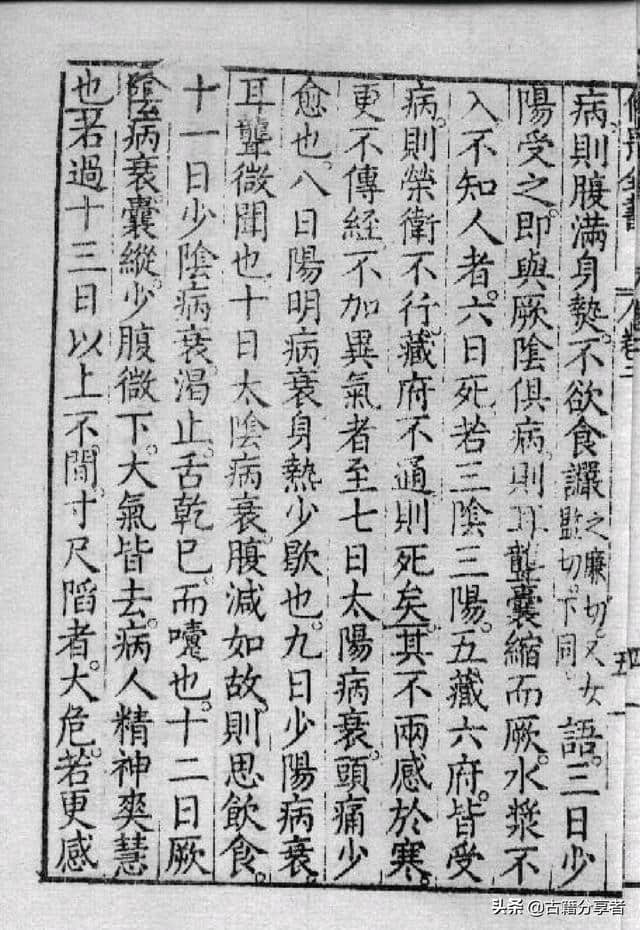 卷二
病。則腹滿身熱。不欲食讝之廉切。又女監切。下同。語。三日少
陽受之。即與厥陰俱病。則耳聾囊縮而厥。水漿不
入。不知人者。六日死。若三陰三陽。五藏六府。皆受
病。則榮衛不行。藏府不通。則死矣。其不兩感於寒。
更不傳經。不加異氣者。至七日太陽病衰。頭痛少
愈也。八日陽明病衰。身熱少歇也。九日少陽病衰。
耳聾微聞也。十日太陰病衰。腹減如故。則思飲食。
十一日少陰病衰。渴止。舌乾已。而嚏也。十二日厥
陰病衰。囊縱。少腹微下。大氣皆去。病人精神爽慧
也。若過十三日以上不間。寸尺陷者。大危。若更感
头条 @古籍分享者